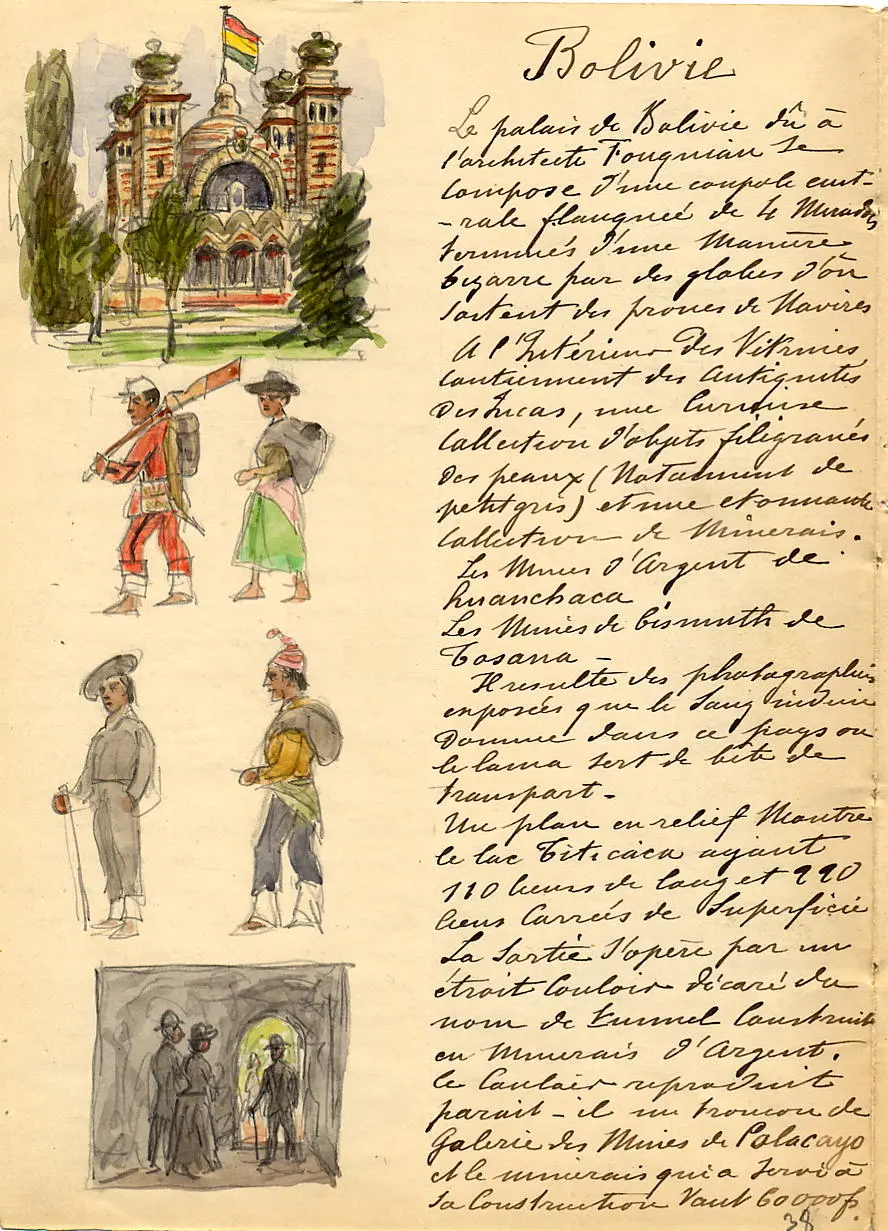 Bolivie
Le palais de Bolivie dû à
l'architecte Fouquiau se
compose d'une coupole cent-
-rale flanquée de 4 Miradors
terminés d'une Manière
bizarre par des globes d'où
sortent des proues de Navires
A l'Intérieur Des Vitrines
contiennent des Antiquités
Des Incas, une Curieuse
Collection d'objets filigranés
Des peaux (Notamment de
petit gris) et une etonnante
Collection de Minerais.
Les Mines d'Argent de
huanchaca
Les Mines de bismuth de
Tosana -
Il resulte des photographies
exposées que le Sang indien
Domine dans ce pays ou
le lama sert de bête de
transport -
Un plan en relief Montre
le lac Titicaca ayant
110 lieues de long et 990
lieues Carrées de Superficie
La Sortie S'opère par un
étroit Couloir décoré du
nom de tunnel Construit
en Minerais d'Argent.
le Couloir reproduit
parait-il un troncon de
Galerie des Mines de Pulacayo
et le minerais qui a Servi à
Sa Construction Vaut 60000f.
38